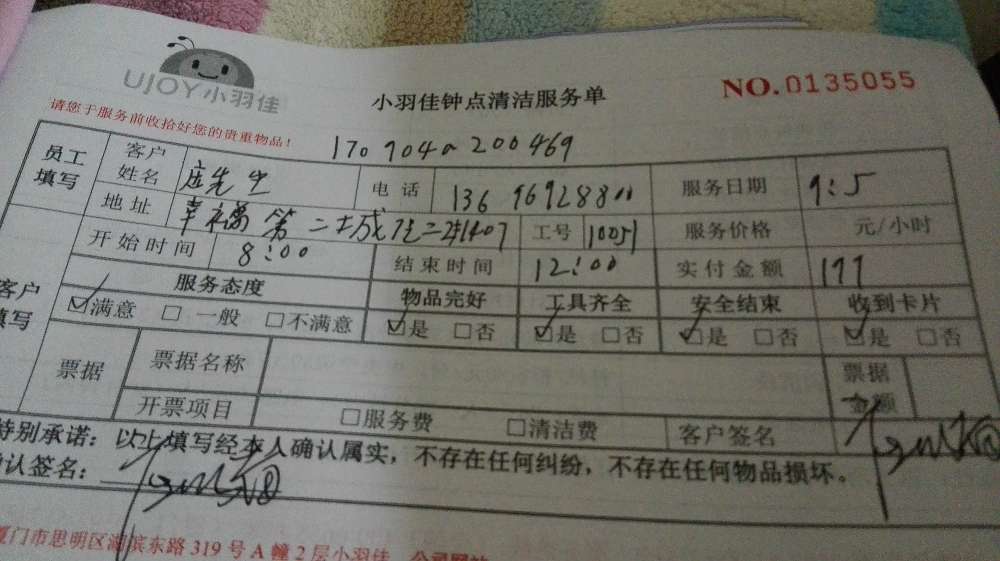 UJOY小羽佳
小羽佳钟点清洁服务单
NO.0135055
请您于服务前收拾好您的贵重物品!
170904a200469
员工填写 客户姓名 先生 电话 13696928800 服务日期 9:5
地址 幸福第二城 1407 工号 10051 服务价格 元/小时
开始时间 8:00 结束时间 12:00 实付金额 177
客户填写 服务态度 物品完好 工具齐全 安全结束 收到卡片
☑满意 □一般 □不满意 ☑是 □否 ☑是 □否 ☑是 □否 ☑是 □否
票据 票据名称 票据金额
开票项目 □服务费 □清洁费 客户签名
特别承诺：以上填写经本人确认属实，不存在任何纠纷，不存在任何物品损坏。
确认签名：
厦门市思明区湖滨东路319号A幢2层小羽佳 公司网站